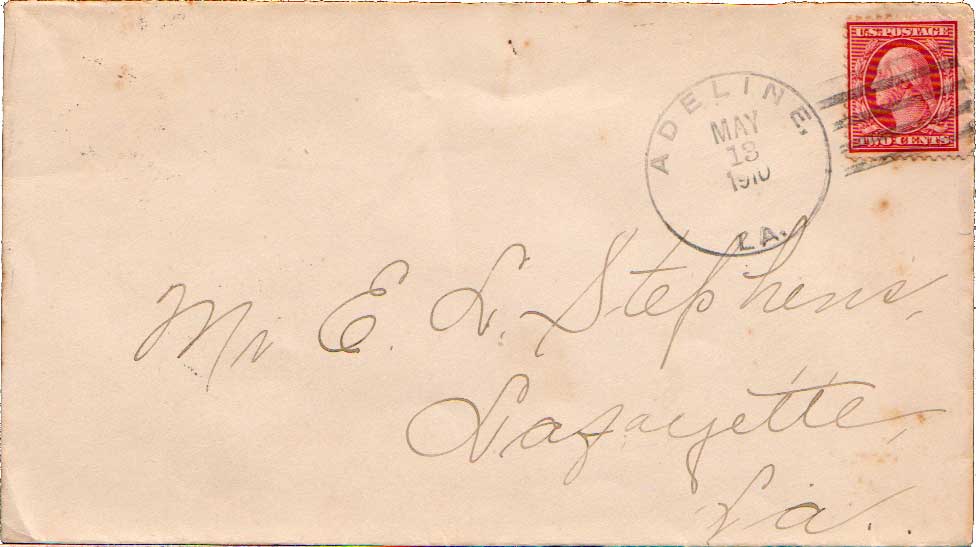 U.S. POSTAGE
TWO CENTS
ADELINE,
MAY
13
1910
LA.
Mr E. L. Stephens,
Lafayette,
La.